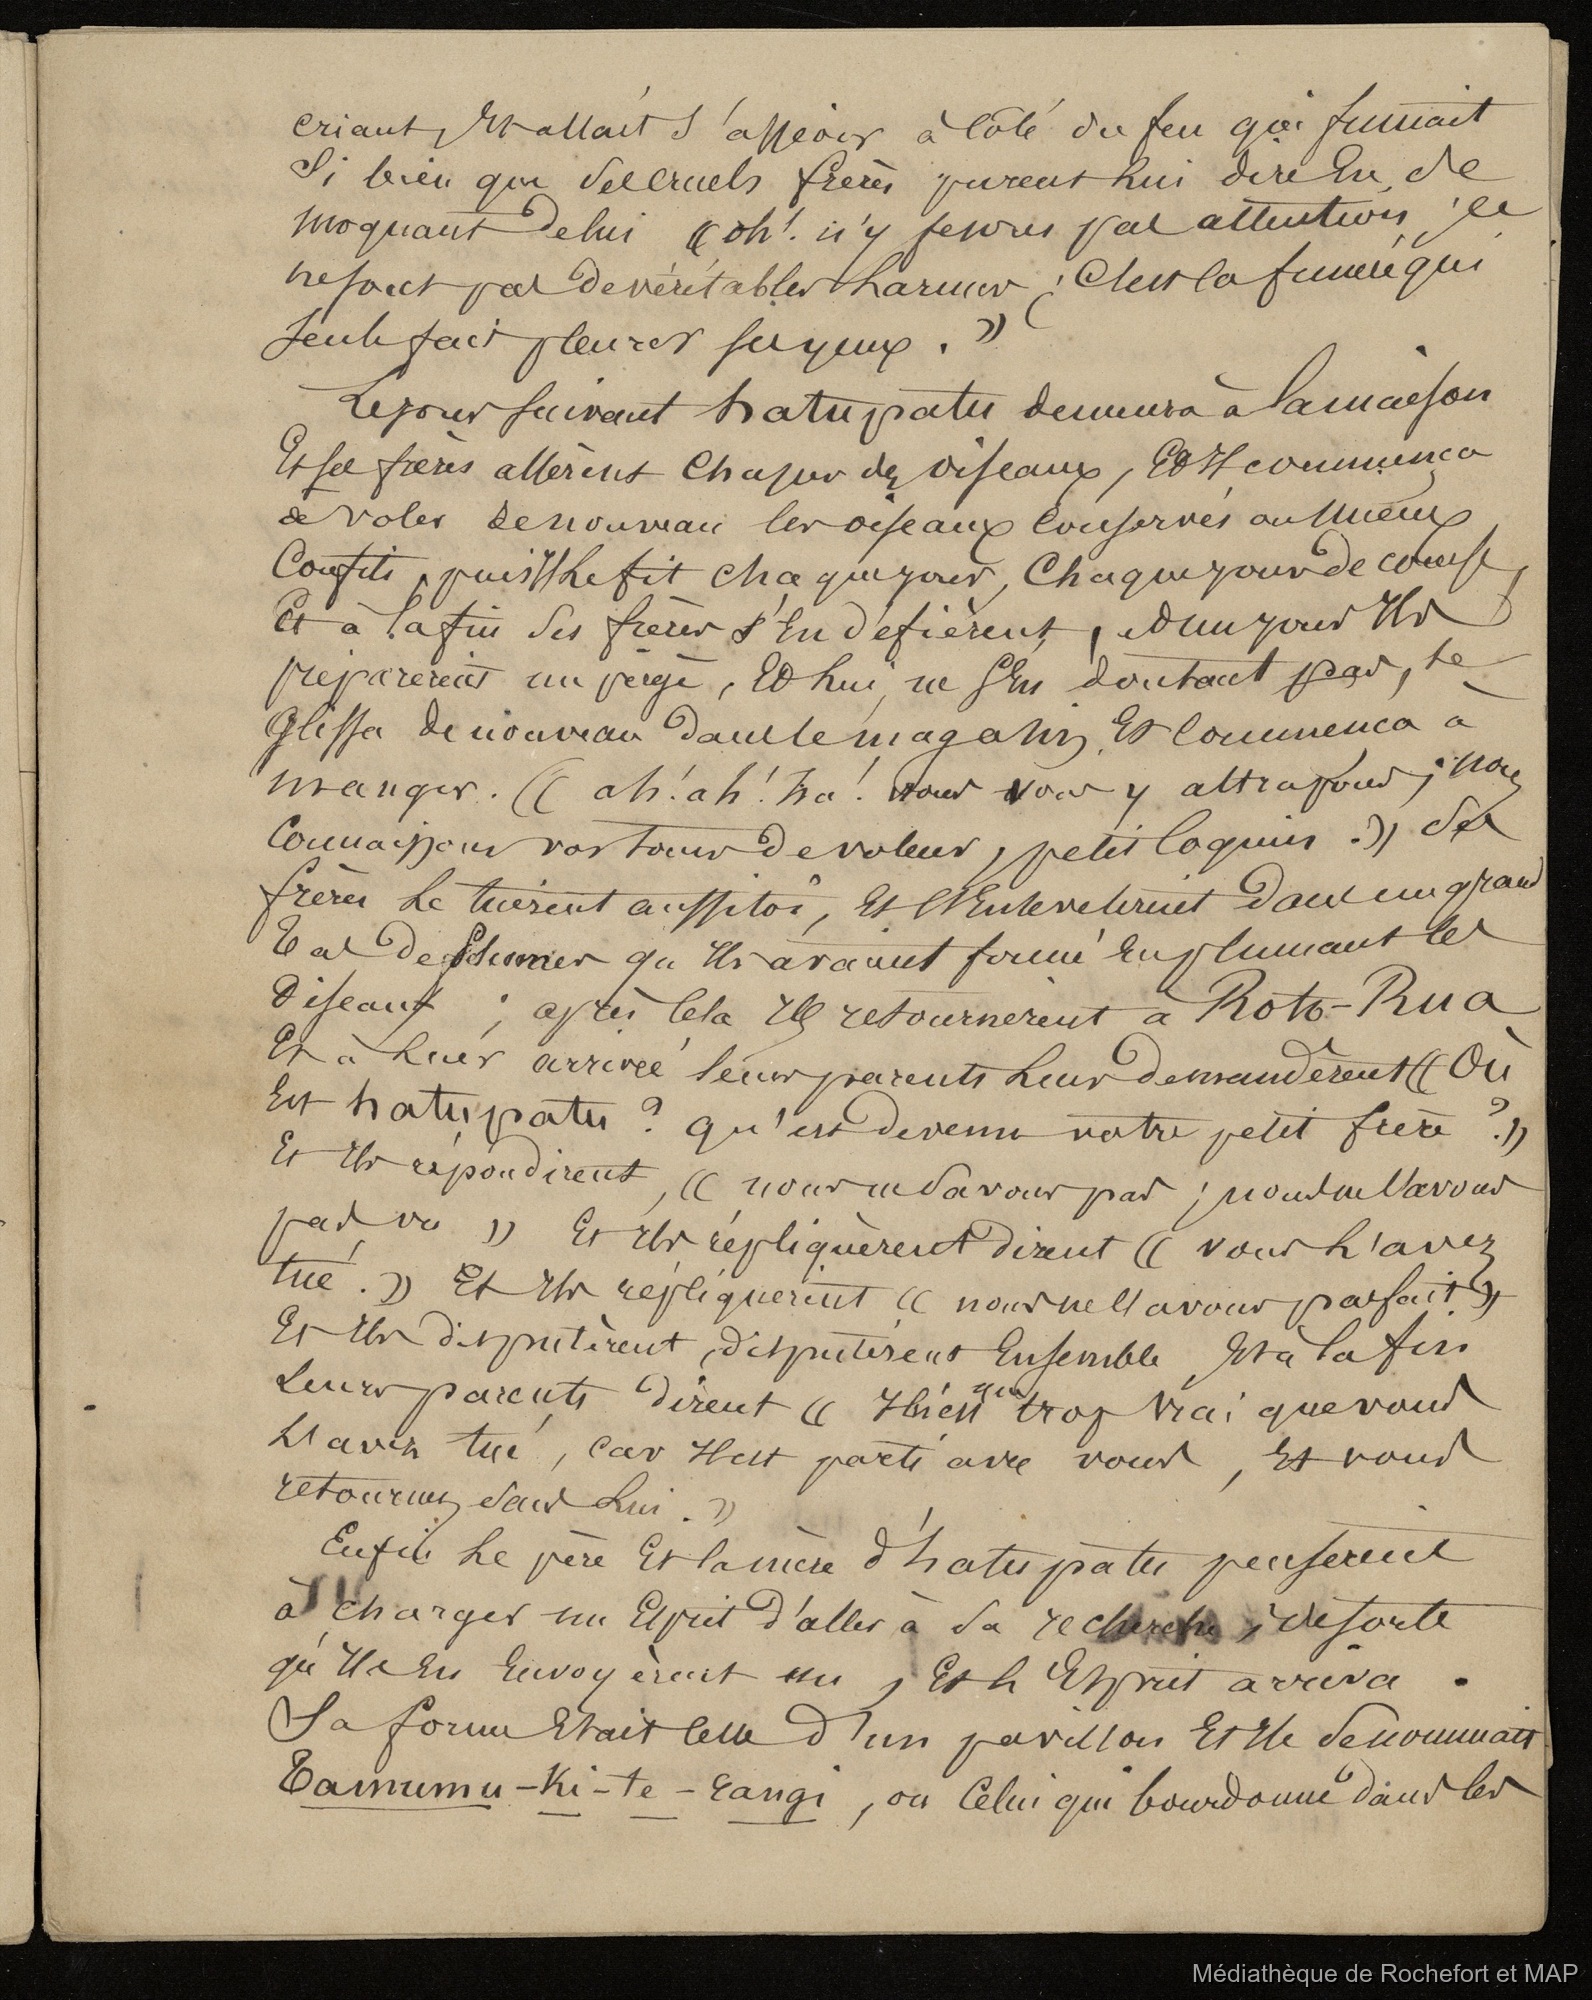 criant, Et allait s'asseoir à côté du feu qui fumait
Si bien que ses cruels frères purent lui dire En se
moquant de lui « oh! n'y fesons pas attention, ce
ne sont pas de véritables larmes ; C'est la fumée qui
seule fait pleurer ses yeux . »
Le jour suivant hatupatu demeura à la maison
Et ses frères allèrent Chasser des oiseaux, Et Il commença
à voler de nouveau les oiseaux conservés ou Mieux
Confits, puis Il le fit chaque jour, Chaque jour de course,
Et à la fin ses frères s'En défièrent, Et un jour Ils
préparèrent un piège, Et lui, ne s'En doutant pas, se
Glissa de nouveau dans le magasin, Et Commença à
manger. « ah! ah! ha! nous vous y attrapons ; nous
Connaissons vos tours de voleur, petit Coquin .» Ses
frères le tuèrent aussitôt, Et l'Ensevelirent dans un grand
Tas de Plumes qu'Ils avaient formé En plumant les
Oiseaux ; après Cela Ils retournèrent à Roto-Rua
Et à leur arrivée leurs parents leur demandèrent « Où
Est hatupatu ? qu'est devenu votre petit frère ? »
Et Ils répondirent, « nous ne Savons pas ; nous ne l'avons
pas vu » Et Ils répliquèrent dirent « vous l'avez
tué . » Et Ils répliquèrent « nous ne l'avons pas fait »
Et Ils disputèrent, disputèrent Ensemble, Et à la fin
Leurs parents dirent « Il n'est que trop vrai que vous
L'avez tué, car Il est parti avec vous, Et vous
retournez sans lui . »
Enfin le père Et la mère d'hatupatu pensèrent
à charger un Esprit d'aller à sa recherche ; de sorte
qu'Ils En Envoyèrent un, Et l'Esprit arriva .
Sa forme Etait celle d'un pavillon Et Il se nommait
Tamumu-Ki-te-rangi, ou Celui qui bourdonne dans les
Médiathèque de Rochefort et MAP